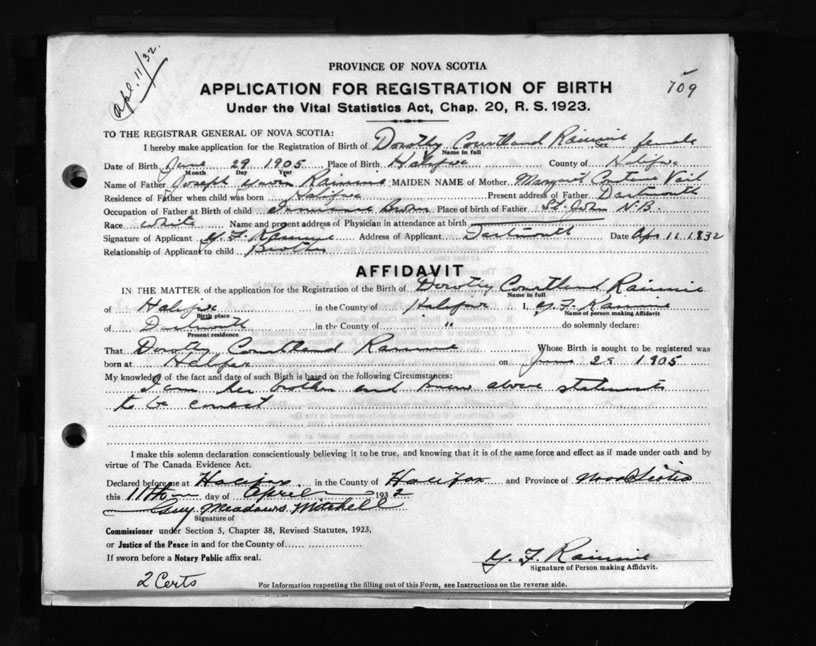 Apl. 11/32.
PROVINCE OF NOVA SCOTIA
709
APPLICATION FOR REGISTRATION OF BIRTH
Under the Vital Statistics Act, Chap. 20, R. S. 1923.
TO THE REGISTRAR GENERAL OF NOVA SCOTIA:
I hereby make application for the Registration of Birth of Dorothy Courtland Rainnie female
Name in full
Date of Birth June 29 1905 Place of Birth Halifax County of Halifax
Month Day Year
Name of Father Joseph Rainnie MAIDEN NAME of Mother Margaret Vail
Residence of Father when child was born Halifax Present address of Father Dartmouth
Occupation of Father at Birth of child Insurance Broker Place of birth of Father St. John N.B.
Race White Name and present address of Physician in attendance at birth
Signature of Applicant G. F. Rainnie Address of Applicant Dartmouth Date Apr 11 1832
Relationship of Applicant to child Brother
AFFIDAVIT
IN THE MATTER of the application for the Registration of the Birth of Dorothy Courtland Rainnie
Name in full
of Halifax in the County of Halifax I, G. F. Rainnie
Birth place Name of person making Affidavit
of Dartmouth in the County of " do solemnly declare:
Present residence
That Dorothy Courtland Rainnie Whose Birth is sought to be registered was
born at Halifax on June 29 1905
My knowledge of the fact and date of such Birth is based on the following Circumstances:
I am her brother and know above statements
to be correct
I make this solemn declaration conscientiously believing it to be true, and knowing that it is of the same force and effect as if made under oath and by
virtue of The Canada Evidence Act.
Declared before me at Halifax in the County of Halifax and Province of Nova Scotia
this 11th day of April 1932
Guy Meadows Mitchell
Signature of
Commissioner under Section 5, Chapter 38, Revised Statutes, 1923,
or Justice of the Peace in and for the County of
If sworn before a Notary Public affix seal.
G. F. Rainnie
Signature of Person making Affidavit.
2 Certs
For Information respecting the filling out of this Form, see Instructions on the reverse side.